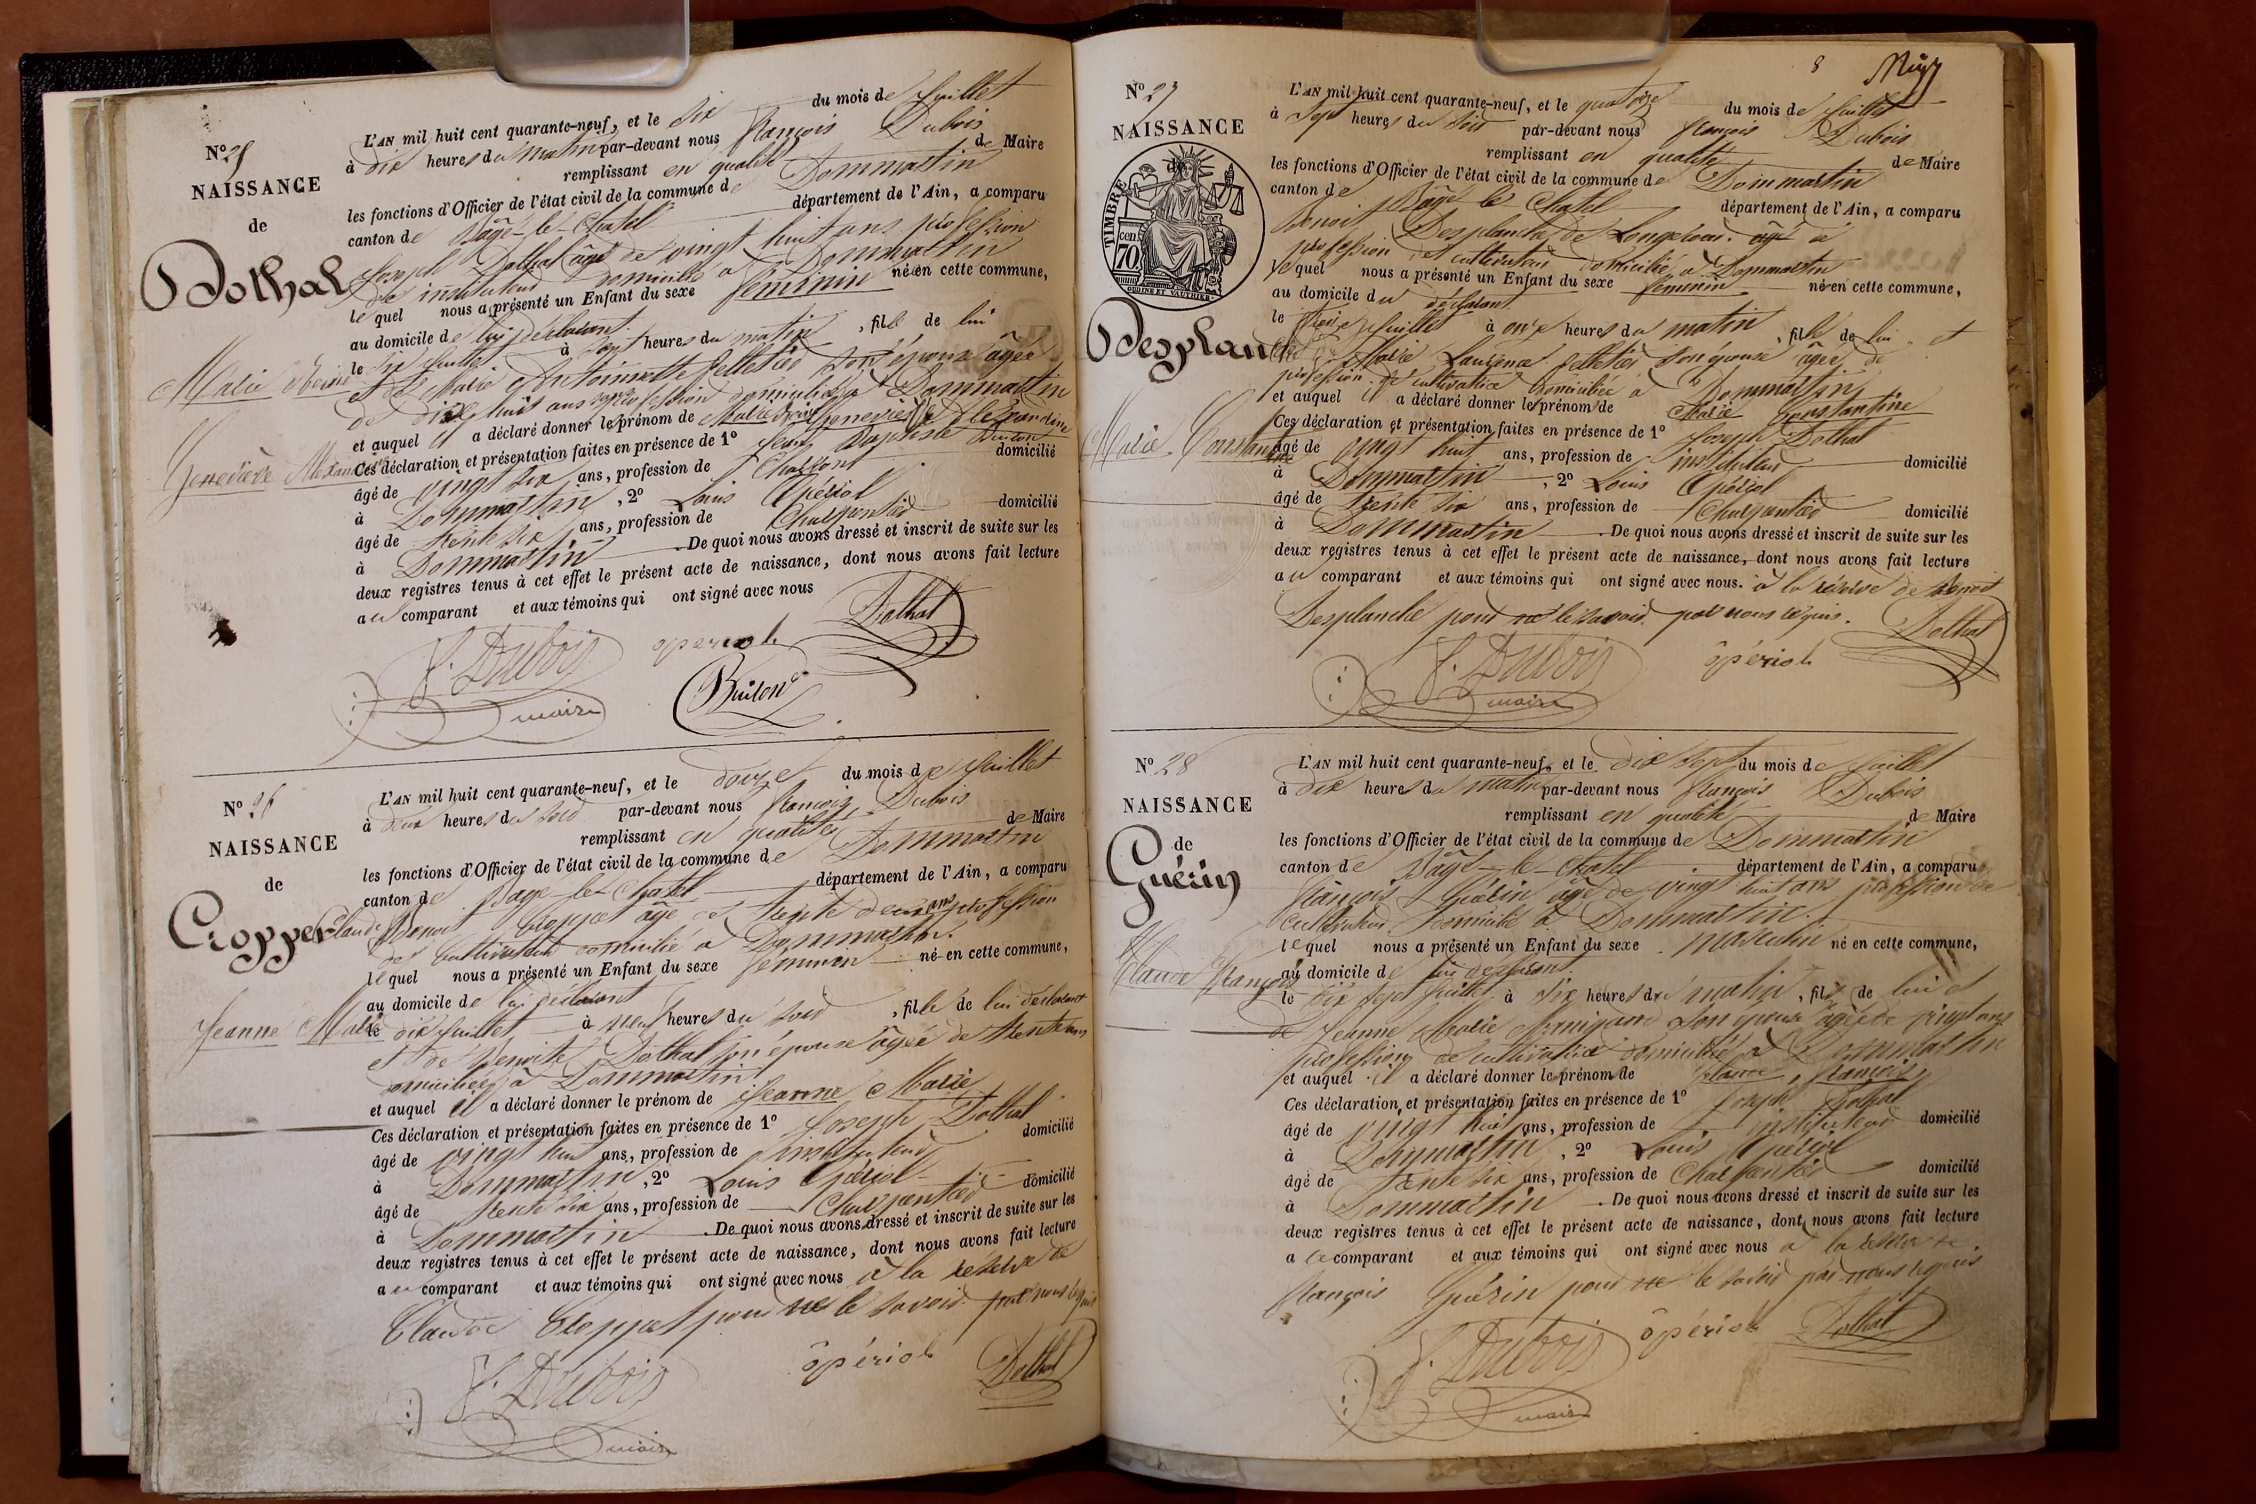 N° 25
NAISSANCE
de
Dolhal
Marie
Geneviève
L'AN mil huit cent quarante-neuf, et le six du mois de Juillet
à dix heures du matin par-devant nous François Dubois
remplissant en qualité de Maire
les fonctions d'Officier de l'état civil de la commune de Dommartin
canton de Bâgé-le-Chatel département de l'Ain, a comparu
Joseph Dolhal âgé de vingt huit ans profession
de instituteur domicilié à Dommartin
lequel nous a présenté un Enfant du sexe féminin né en cette commune,
au domicile de lui déclarant
le six Juillet à sept heures du matin, fille de lui
et de Marie Antoinette Pelletier son épouse âgée
de dix huit ans profession domiciliée à Dommartin
et auquel il a déclaré donner le prénom de Marie Geneviève
Ces déclaration et présentation faites en présence de 1° Jean Baptiste Buiton
âgé de vingt six ans, profession de domicilié
à Dommartin, 2° Louis Opériol
âgé de trente six ans, profession de Charpentier domicilié
à Dommartin. De quoi nous avons dressé et inscrit de suite sur les
deux registres tenus à cet effet le présent acte de naissance, dont nous avons fait lecture
au comparant et aux témoins qui ont signé avec nous
Dolhal
opériol
F. Dubois
maire
Buiton
N° 26
NAISSANCE
de
Croppet
Jeanne Marie
L'AN mil huit cent quarante-neuf, et le douze du mois de Juillet
à deux heures du soir par-devant nous François Dubois
remplissant en qualité de Maire
les fonctions d'Officier de l'état civil de la commune de Dommartin
canton de Bagé-le-Chatel département de l'Ain, a comparu
Claude Benoit Croppet âgé de trente deux ans profession
de cultivateur domicilié à Dommartin.
lequel nous a présenté un Enfant du sexe féminin né en cette commune,
au domicile de lui déclarant
le dix Juillet à neuf heures du soir, fille de lui déclarant
et de Benoite Dolhal son épouse âgée de trente ans
domiciliée à Dommartin
et auquel il a déclaré donner le prénom de Jeanne Marie
Ces déclaration et présentation faites en présence de 1° Joseph Dolhal
âgé de vingt huit ans, profession de instituteur domicilié
à Dommartin, 2° Louis Opériol
âgé de trente six ans, profession de Charpentier domicilié
à Dommartin. De quoi nous avons dressé et inscrit de suite sur les
deux registres tenus à cet effet le présent acte de naissance, dont nous avons fait lecture
au comparant et aux témoins qui ont signé avec nous à la réserve de
Claude Croppet pour ne le savoir par nous requis
opériol
Dolhal
F. Dubois
maire
8
N° 27
NAISSANCE
de
TIMBRE
70 cen
OUDINÉ ET VAUTHIER
Desplanche
Marie Constantine
L'AN mil huit cent quarante-neuf, et le quatorze du mois de Juillet
à sept heures du soir par-devant nous François Dubois
remplissant en qualité de Maire
les fonctions d'Officier de l'état civil de la commune de Dommartin
canton de Bâgé le Chatel département de l'Ain, a comparu
Benoit Desplanche de âgé
profession de cultivateur domicilié à Dommartin
lequel nous a présenté un Enfant du sexe féminin né en cette commune,
au domicile du déclarant
le treize Juillet à onze heures du matin, fille de lui et
Marie Laurence Pelletier son épouse âgée de
profession de cultivatrice domiciliée à Dommartin
et auquel il a déclaré donner le prénom de Marie Constantine
Ces déclaration et présentation faites en présence de 1° Joseph Dolhal
âgé de vingt huit ans, profession de instituteur domicilié
à Dommartin, 2° Louis Opériol
âgé de trente six ans, profession de Charpentier domicilié
à Dommartin. De quoi nous avons dressé et inscrit de suite sur les
deux registres tenus à cet effet le présent acte de naissance, dont nous avons fait lecture
au comparant et aux témoins qui ont signé avec nous. à la réserve de Benoit
Desplanche pour ne le savoir par nous requis.
Dolhal
opériol
F. Dubois
maire
N° 28
NAISSANCE
de
Guérin
Claude François
L'AN mil huit cent quarante-neuf, et le dix sept du mois de Juillet
à dix heures du matin par-devant nous François Dubois
remplissant en qualité de Maire
les fonctions d'Officier de l'état civil de la commune de Dommartin
canton de Bâgé-le-Chatel département de l'Ain, a comparu
François Guérin âgé de vingt huit ans profession de
cultivateur domicilié à Dommartin.
lequel nous a présenté un Enfant du sexe masculin né en cette commune,
au domicile de lui déclarant
le dix sept Juillet à six heures du matin, fils de lui et
de Jeanne Marie son épouse âgée de vingt ans
profession de cultivatrice domiciliée à Dommartin
et auquel il a déclaré donner le prénom de Claude François
Ces déclaration et présentation faites en présence de 1° Joseph Dolhal
âgé de vingt huit ans, profession de instituteur domicilié
à Dommartin, 2° Louis Opériol
âgé de trente six ans, profession de Charpentier domicilié
à Dommartin. De quoi nous avons dressé et inscrit de suite sur les
deux registres tenus à cet effet le présent acte de naissance, dont nous avons fait lecture
a le comparant et aux témoins qui ont signé avec nous à la réserve de
François Guérin pour ne le savoir par nous requis
opériol
Dolhal
F. Dubois
maire